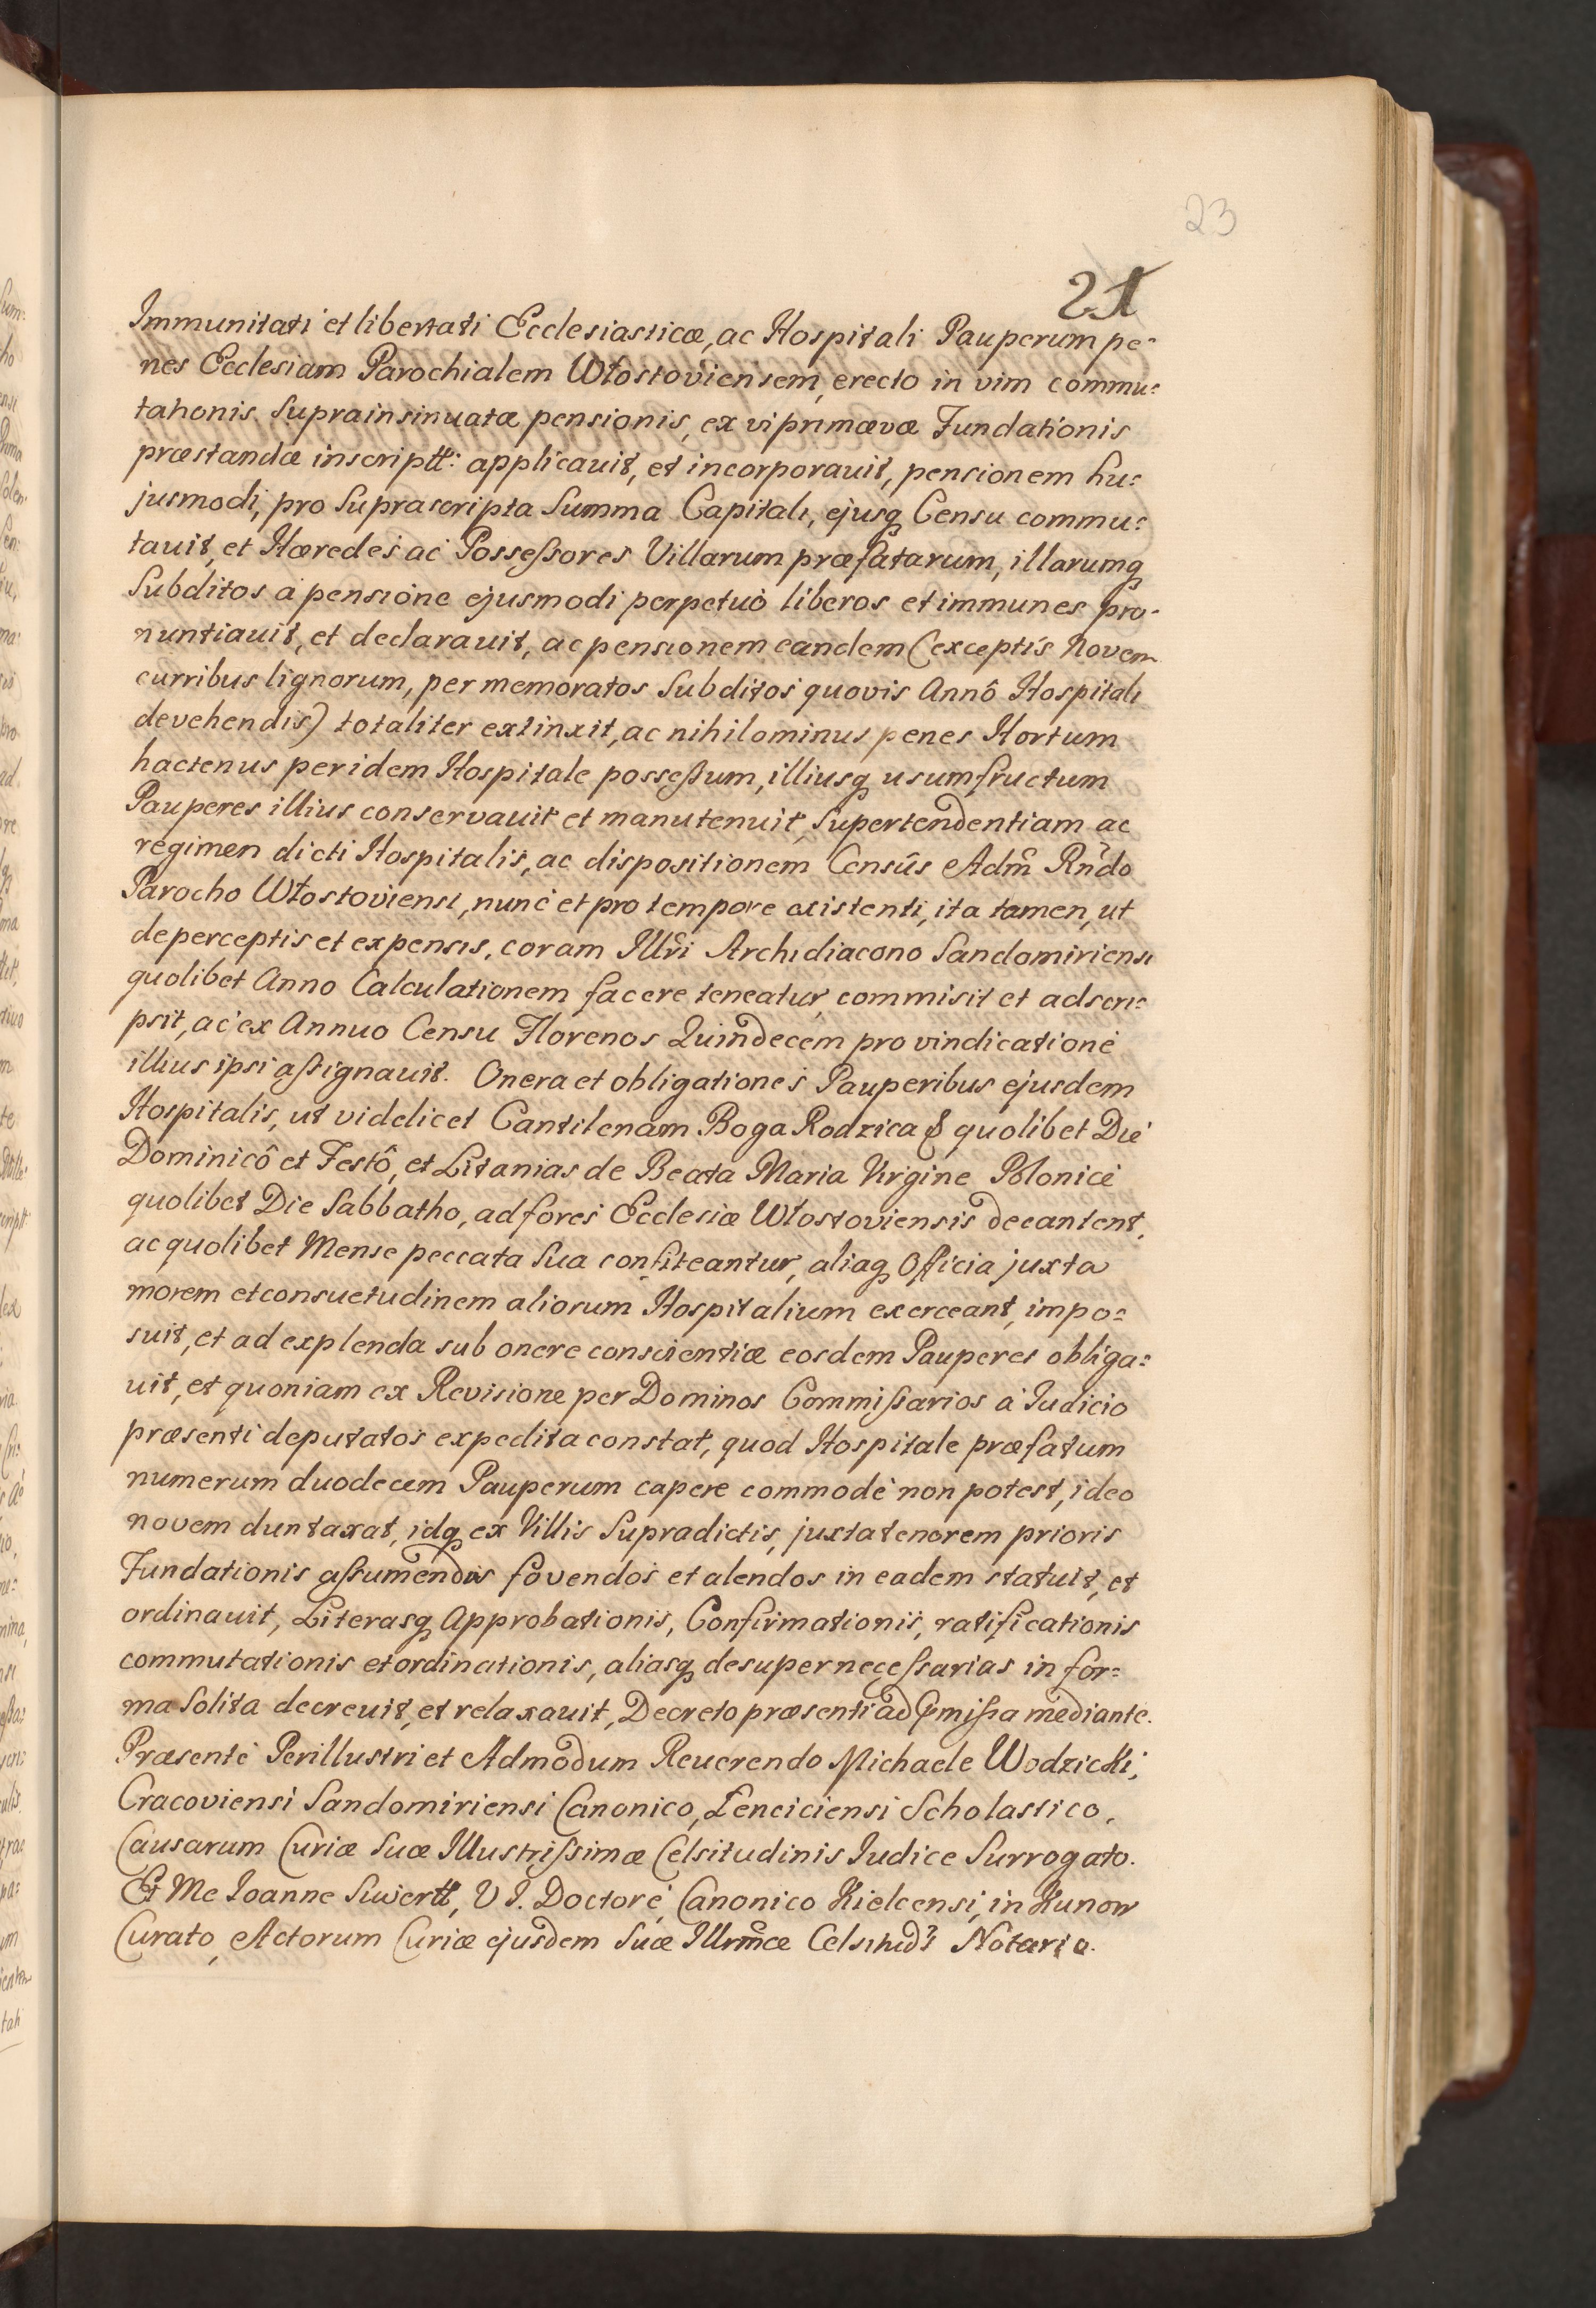 23
21
Immunitati et libertati Ecclesiasticæ, ac Hospitali Pauperum pe-
nes Ecclesiam Parochialem Włostoviensem, erecto in vim commu-
tationis suprainsinuatæ pensionis, ex vi primævæ Fundationis
præstandæ inscriptt: applicauit, et incorporauit, pensionem hu-
jusmodi, pro suprascripta Summa Capitali, ejusq Censu commu-
tauit, et Hæredes ac Possessores Villarum præfatarum, illarumq
Subditos a pensione ejusmodi perpetuò liberos et immunes pro-
nuntiauit, et declarauit, ac pensionem eandem (exceptis Novem
curribus lignorum, per memoratos Subditos quovis Annô Hospitali
devehendis) totaliter extinxit, ac nihilominus penes Hortum
hactenus per idem Hospitale possessum, illiusq usumfructum
Pauperes illius conservauit et manutenuit, Supertendentiam ac
regimen dicti Hospitalis, ac dispositionem Censûs Adm Rndo
Parocho Włostoviensi, nunc et pro tempore existenti, ita tamen, ut
de perceptis et expensis, coram Illri Archidiacono Sandomiriensi
quolibet Anno Calculationem facere teneatur, commisit et adscri-
psit, ac ex Annuo Censu Florenos Quindecem pro vindicatione
illius ipsi assignauit. Onera et obligationes Pauperibus ejusdem
Hospitalis, ut videlicet Cantilenam Boga Rodzica & quolibet Die
Dominicô et Festô, et Litanias de Beata Maria Virgine Polonice
quolibet Die Sabbatho, ad fores Ecclesiæ Włostoviensis decantent,
ac quolibet Mense peccata sua confiteantur, aliaq Officia juxta
morem et consuetudinem aliorum Hospitalium exerceant, impo-
suit, et ad explenda sub onere conscientiæ eosdem Pauperes obliga-
uit, et quoniam ex Revisione per Dominos Commissarios a Iudicio
præsenti deputatos expedita constat, quod Hospitale præfatum
numerum duodecem Pauperum capere commodè non potest, ideo
novem duntaxat, idq ex Villis Supradictis, juxta tenorem prioris
Fundationis assumendos fovendos et alendos in eadem statuit, et
ordinauit, Literasq Approbationis, Confirmationis, ratificationis
commutationis et ordinationis, aliasq desuper necessarias in for-
ma solita decreuit, et relaxauit, Decreto præsenti ad pmissa mediante.
Præsente Perillustri et Admodum Reuerendo Michaele Wodzicki,
Cracoviensi Sandomiriensi Canonico, Lenciciensi Scholastico,
Causarum Curiæ Suæ Illustrissimæ Celsitudinis Iudice Surrogato.
Et Me Ioanne Suwertt, V I. Doctore, Canonico Kielcensi, in Kunow
Curato, Actorum Curiæ ejusdem Suæ Illrmæ Celsitudis Notario.